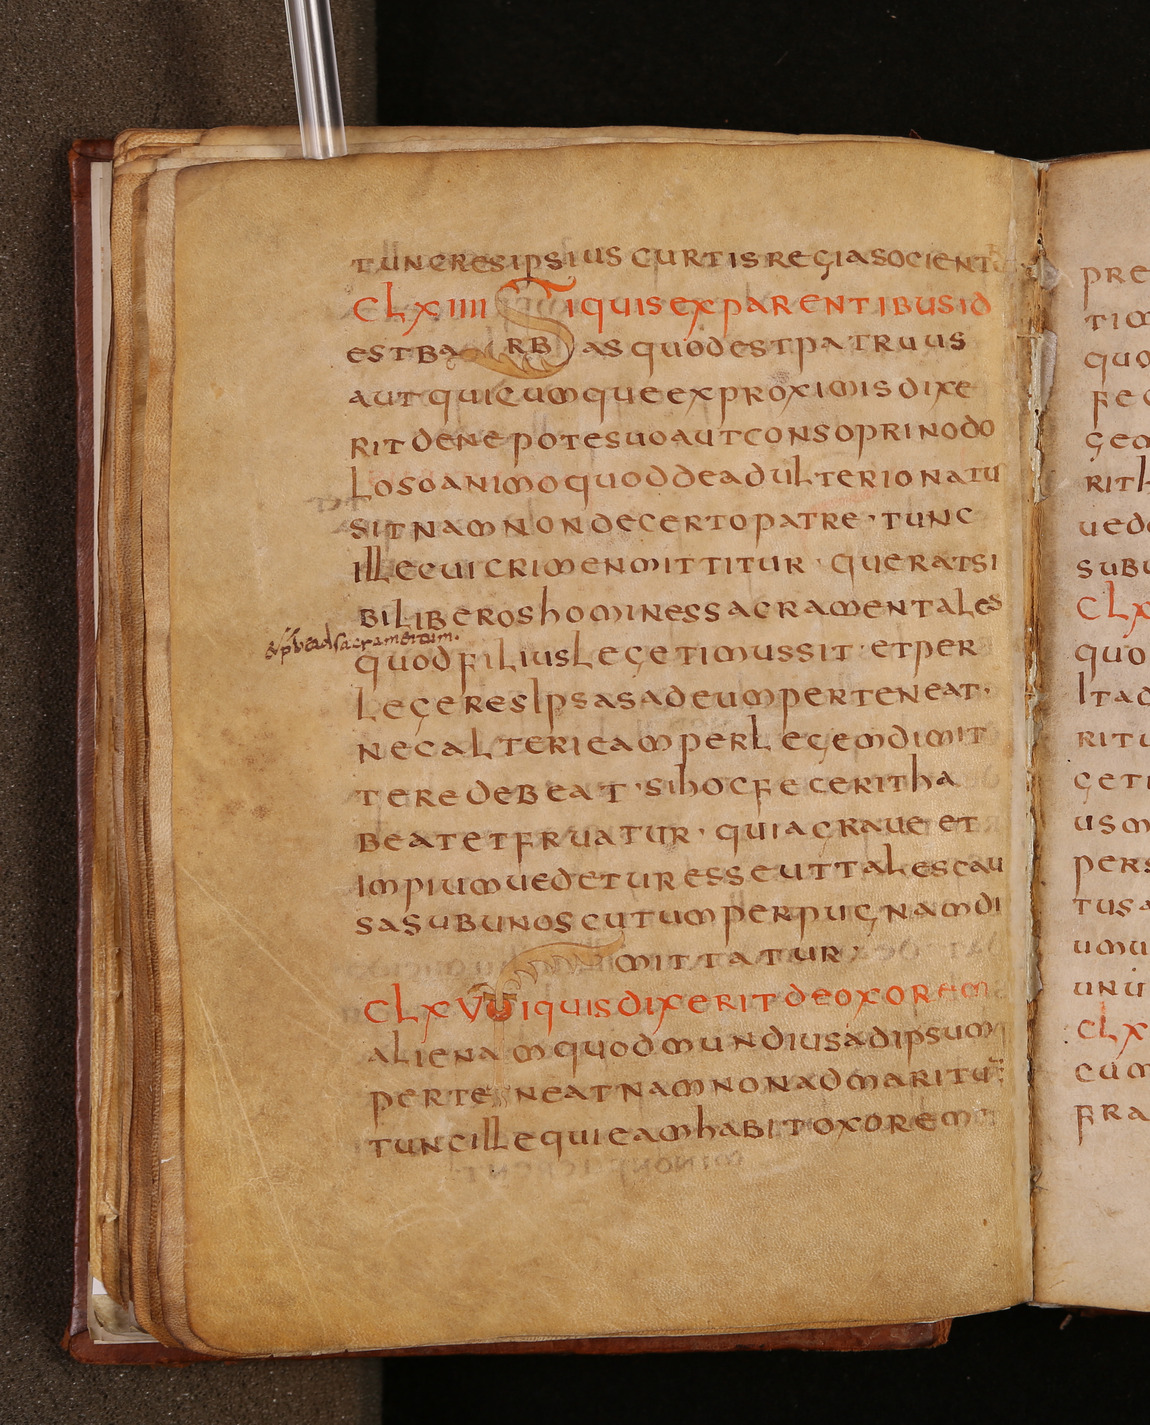 TUNCRESIPSIUS CURTISREGIASOCIENT
CLXIIII SIQUISEXPARENTIBUSID
ESTBARBAS QUODESTPATRUUS
AUTQUICUMQUEEXPROXIMISDIXE
RITDENEPOTESUOAUTCONSOPRINODO
LOSOANIMOQUODDEADULTERIONATU
SITNAMNONDECERTOPATRE · TUNC
ILLECUICRIMENMITTITUR · QUERATSI
BILIBEROSHOMINESSACRAMENTALES
QUODFILIUSLEGETIMUSSIT · ETPER
LEGERESIPSASADEUMPERTENEAT ·
NECALTERIEAMPERLEGEMDIMIT
TEREDEBEAT · SIHOCFECERITHA
BEATETFRUATUR · QUIAGRAUEET
IMPIUMUEDETURESSEUTTALESCAU
SASUBUNOSCUTUMPERPUGNAMDI
MITTATUR
CLXV SIQUISDIXERITDEOXOREM
ALIENAMQUODMUNDIUSADIPSUM
PERTENEATNAMNONADMARITU
TUNCILLEQUIEAMHABITOXOREM
PRE
TIM
QUO
FEC
GEM
RITH
UEDE
SUBU
CLX
QUO
ITAD
RITU
GETI
USM
PERS
TUSA
UMU
UNU
CLX
CUM
FRA